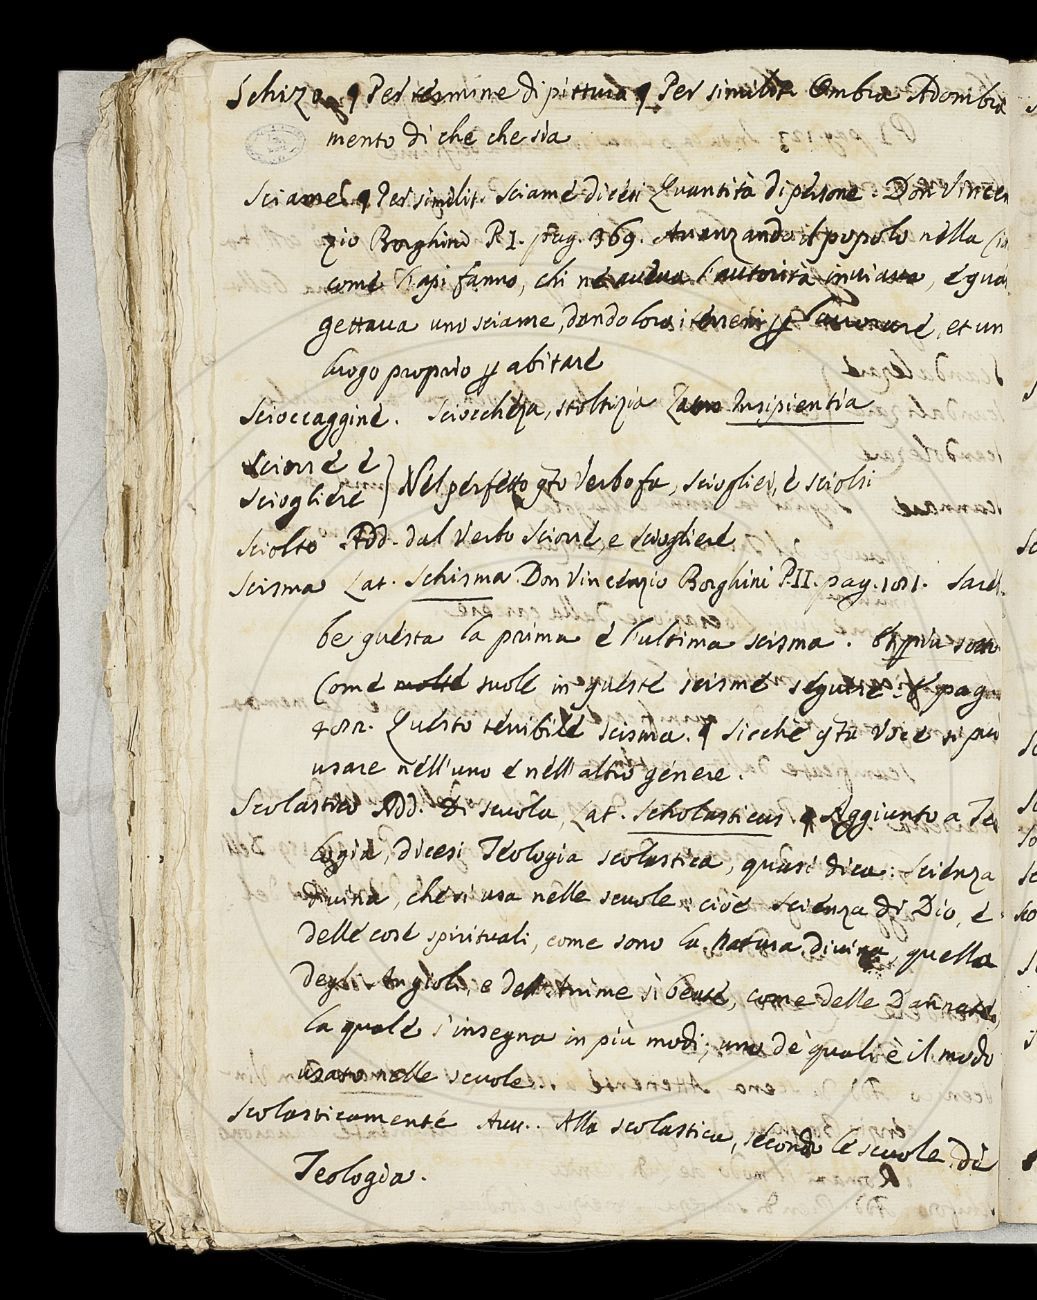 Schizo. ¶ Per termine di pittura ¶ Per similit. Ombra Adombra
mento di che che sia
Sciame. ¶ Per similit. Sciame dicesi Quantità di persone. Don Vincen
zio Borghini P. I. pag. 369. Avanzando il popolo nella
come l'api fanno, chi ne aveua l'autorità inviava, e qua
gettava uno sciame, dando loro i terreni ꝑ lavorare, et un
luogo proprio ꝑ abitare
Scioccaggine. Sciocchezza, stoltizia Latino Insipientia
Sciorre e
Sciogliere } Nel perfetto qto Verbo fa, sciogliei, e sciolsi
Sciolto Add. dal Verbo Sciorre e sciogliere
Scisma Lat. Schisma Don Vincenzio Borghini P. II. pag. Sareb
be questa la prima e l'ultima scisma.
Come suole in queste scisme seguire. E pag
Questo terribile scisma. ¶ Sicchè qta Voce si può
usare nell'uno e nell'altro genere.
Scolastico Add. Di scuola, Lat. Scholasticus ¶ Aggiunto a Te
logia, dicesi Teologia scolastica, quasi dica: Scienza
Divina, che si usa nelle scuole, cioè scienza di Dio, e
delle cose spirituali, come sono la natura divina, quella
degli Angioli, e dell'Anime sì beate, come delle Dannate,
la quale s'insegna in più modi; uno de' quali è il modo
usato nelle scuole.
Scolasticamente Avv. Alla scolastica, secondo le scuole di
Teologia.